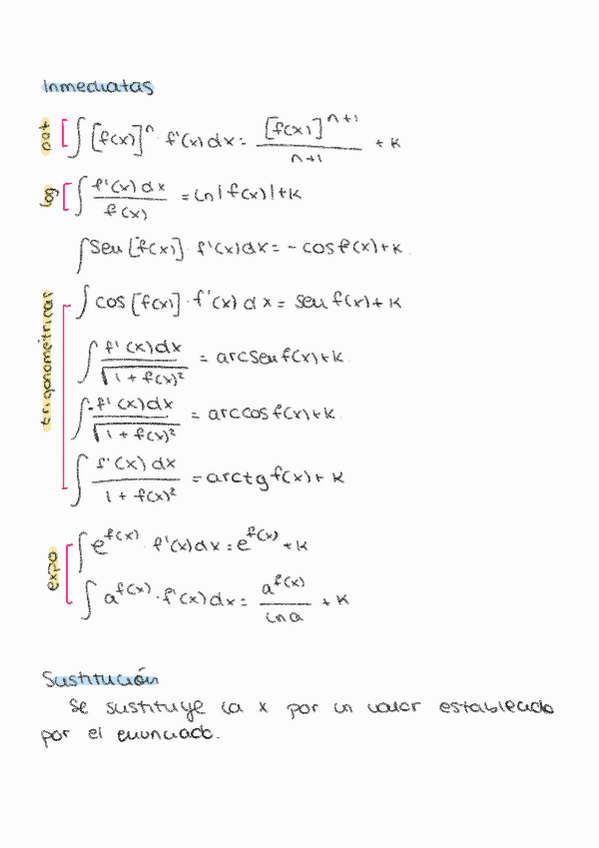 Inmediatas
pot ∫ [f(x)]ⁿ · f'(x) dx = [f(x)]ⁿ⁺¹ / n+1 + K
log ∫ f'(x) dx / f(x) = ln|f(x)| + K
∫ sen [f(x)] · f'(x) dx = - cos f(x) + K
trigonométricas
∫ cos [f(x)] · f'(x) dx = sen f(x) + K
∫ f'(x) dx / √(1 + f(x)²) = arcsen f(x) + K
∫ -f'(x) dx / √(1 + f(x)²) = arccos f(x) + K
∫ f'(x) dx / 1 + f(x)² = arctg f(x) + K
expo
∫ e^f(x) · f'(x) dx = e^f(x) + K
∫ a^f(x) · f'(x) dx = a^f(x) / ln a + K
Sustitución
Se sustituye la x por un valor establecido
por el enunciado.